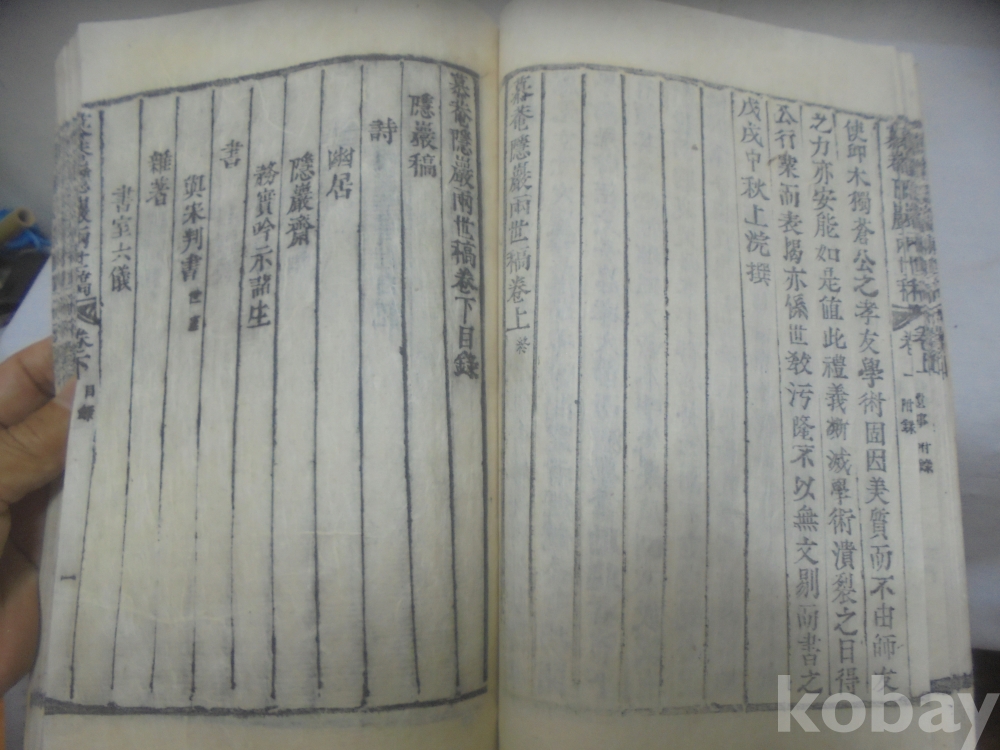 使卽木獨蒼公之孝友學術固因美質而不由師友
之力亦安能如是値此禮義澌滅學術潰裂之日得
公行衆而表揭亦係世敎汚隆不以無文剔而書之
戊戌中秋上浣撰
慕菴隱巖兩世稿卷上 終
慕菴隱巖兩世稿卷下目錄
隱巖稿
詩
幽居
隱巖齋
務實吟示諸生
書
與朱判書
雜著
書室六儀
卷下
目錄
一
卷上
附錄
附錄
kobay